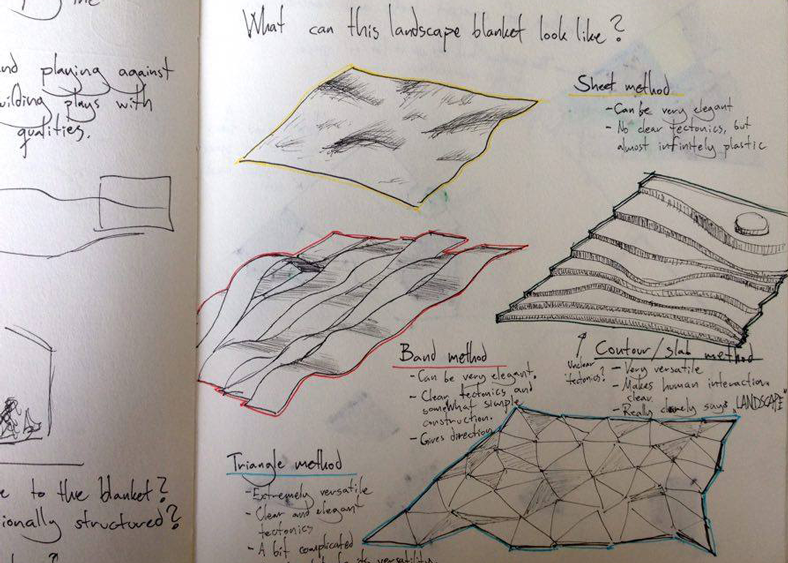 and playing against
building plays with
qualities.
e to the blanket?
ionally structured?
What can this landscape blanket look like?
Sheet method
- Can be very elegant
- No clear tectonics, but
almost infinitely plastic
Band method
- Can be very elegant.
- Clear tectonics and
somewhat simple
construction.
- Gives direction
Unclear
tectonics?
Contour/slab method
- Very versatile
- Makes human interaction
clear
- Really clearly says "LANDSCAPE"
Triangle method
- Extremely versatile
- Clear and elegant
tectonics
- A bit complicated
its versatility.